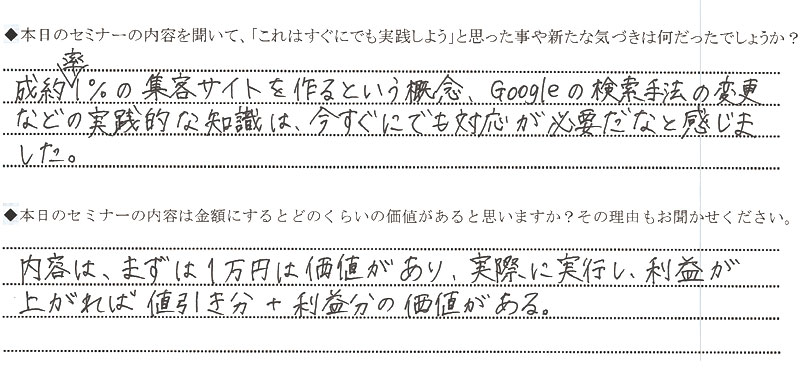 ◆本日のセミナーの内容を聞いて、「これはすぐにでも実践しよう」と思った事や新たな気づきは何だったでしょうか？
成約率1%の集客サイトを作るという概念、Googleの検索手法の変更
などの実践的な知識は、今すぐにでも対応が必要だなと感じま
した。
◆本日のセミナーの内容は金額にするとどのくらいの価値があると思いますか？その理由もお聞かせください。
内容は、まずは1万円は価値があり、実際に実行し、利益が
上がれば値引き分+利益分の価値がある。